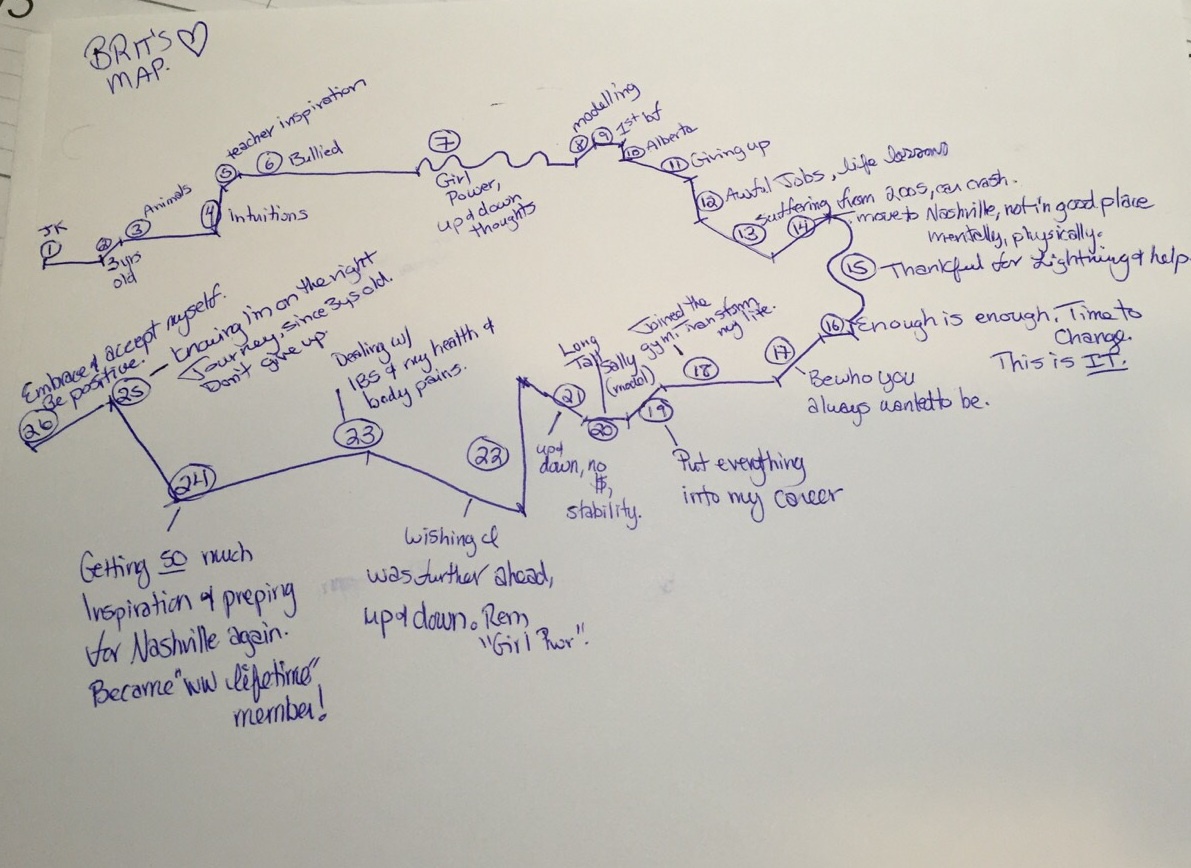 BRIT'S ♡
MAP.
JK
1
2
3yrs
old
3
Animals
4
Intuitions
5
teacher inspiration
6
Bullied
7
Girl
Power,
up & down
thoughts
8
modelling
9
1st bf
10
Alberta
11
Giving up
12
Awful Jobs, life lessons
13
Suffering from 2005, car crash.
14
move to Nashville, not in good place
mentally, physically.
15
Thankful for Lightning & help
16
Enough is enough. Time to
Change.
This is IT.
17
Be who you
always wanted to be.
18
Joined the
gym. Transform
my life.
19
Put everything
into my career
20
Long
Tall
Sally
(model)
21
up &
down, no
$,
stability.
22
Wishing I
was further ahead,
up & down. Rem
"Girl Pwr".
23
Dealing w/
IBS & my health &
body pains.
24
Getting so much
Inspiration & preping
for Nashville again.
Became "WW lifetime"
member!
25
Knowing i'm on the right
Journey, since 3ys old.
Don't give up.
26
Embrace & accept myself.
Be positive.